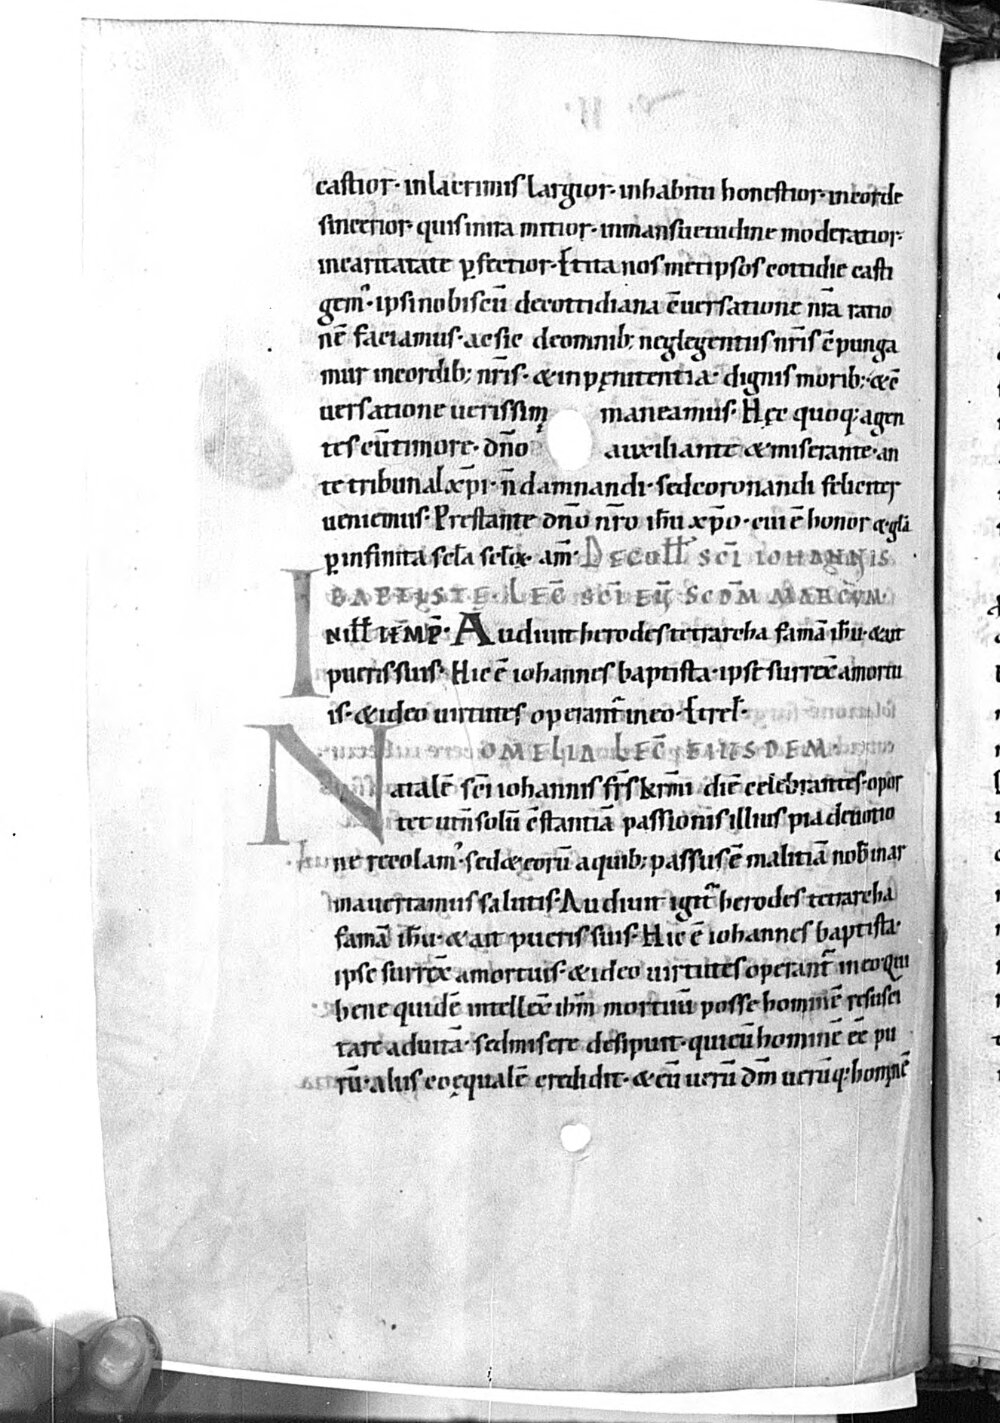 castior· inlacrimis largior· inhabitu honestior· incorde
sincerior· quis inira mitior· inmansuetudine moderatior·
incaritatate ꝑfectior· Et ita nos met ipsos cottidie casti
gem᷒· ipsi nobiscū decottidiana c̄uersatione nr̄a ratio
nē faciamus· ac sic deomnib; neglegentiis nr̄is c̄punga
mur incordib; nr̄is· & inpęnitentia· dignis morib; & c̄
uersatione uerissima maneamus· Hęc quoq; agen
tes cū timore· dn̄o auxiliante & miserante· an
te tribunal xp̄i· n̄ damnandi· sed coronandi feliciter
ueniemus· Prestante dn̄o nr̄o ih̄u xp̄o· cui ē honor & gl̄a
ꝑ infinita sc̄la sc̄loꝝ· am̄· DECOLL̄ SC̄I IOHANNIS
BAPTISTE· LEC̄ SC̄I EU̅· SCD̄M MARCUM·
IN ILL̄ TEMP̄· Audiuit herodes tetrarcha famā ih̄u· & ait
pueris suis· Hic ē iohannes baptista· ipse surrex̄ amortu
is· & ideo uirtutes operant᷒ ineo· Et rel̄·
OMELIA LEC̄ EIUSDEM·
Natalē sc̄i iohannis fr̄s kr̄mi diē celebrantes· opor
tet ut n̄ solū c̄stantiā passionis illius pia deuotio
ne recolam᷒· sed & eorū a quib; passus ē malitiā nob̄ mar
ma uertamus salutis· Audiuit igit᷒ herodes tetrarcha
famā ih̄u· & ait pueris suis· Hic ē iohannes baptista·
ipse surrex̄ amortuis· & ideo uirtutes operant᷒ ineo· Qui
bene quidē intellex̄ ih̄m mortuū posse hominē resusci
tare aduitā· sed misere desipuit· qui eū hominē eē pu
rū· aliis coęqualē credidit· & eū uerū dm̄ uerūq; hominē